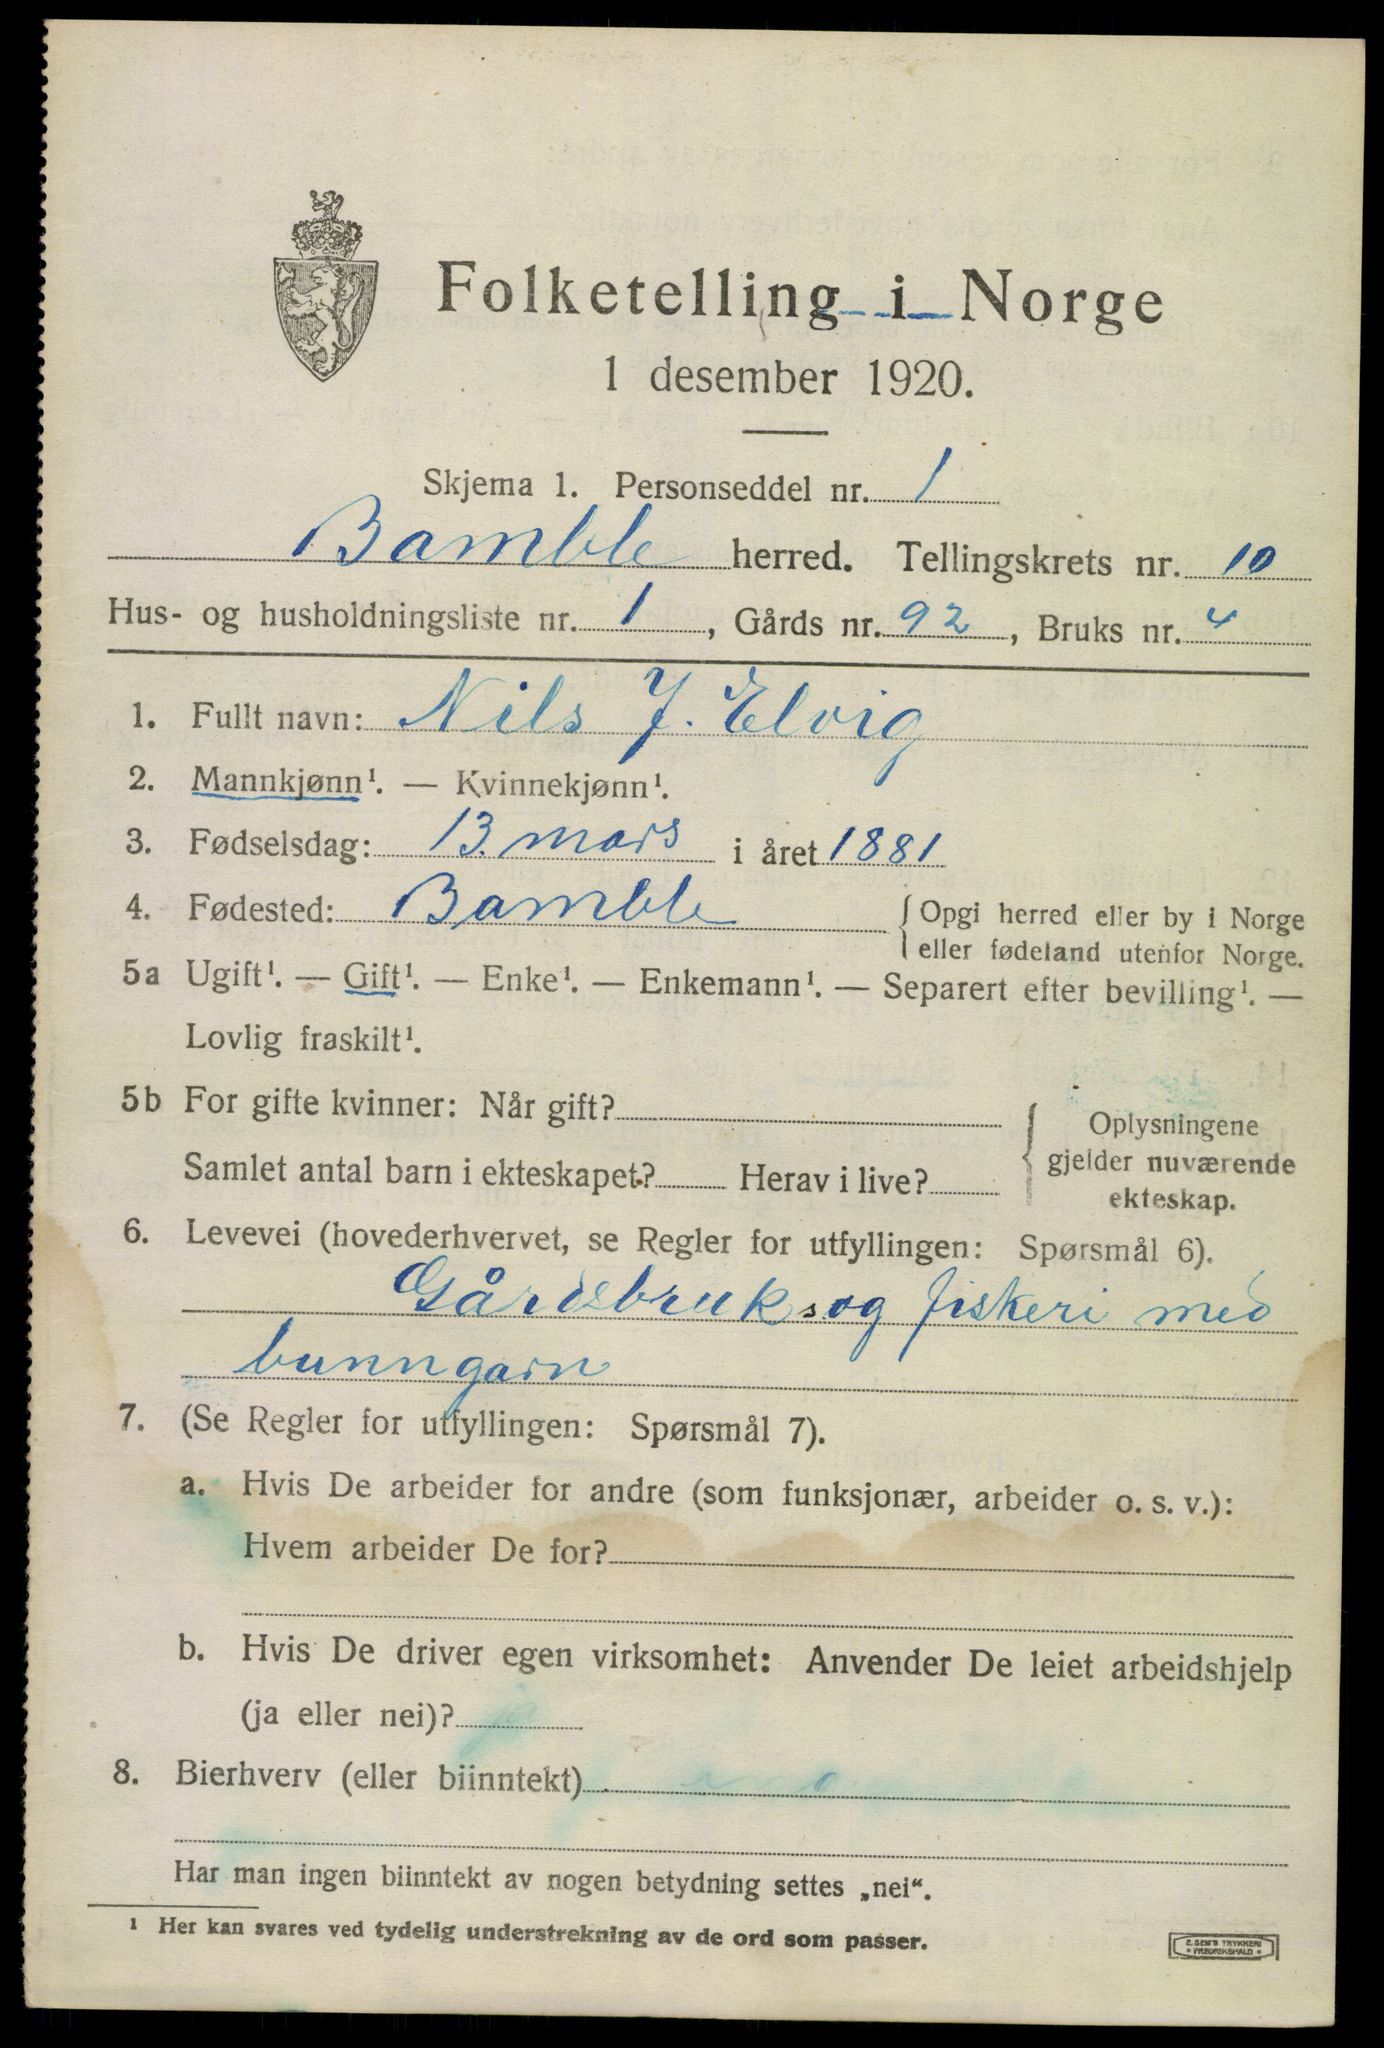 Folketelling i Norge
1 desember 1920.
Skjema 1. Personseddel nr. 1
Bamble herred. Tellingskrets nr. 10
Hus- og husholdningsliste nr. 1, Gårds nr. 92, Bruks nr. 4
1. Fullt navn: Nils J. Elvig
2. Mannkjønn¹. — Kvinnekjønn¹.
3. Fødselsdag: 13. mars i året 1881
4. Fødested: Bamble { Opgi herred eller by i Norge
eller fødeland utenfor Norge.
5a Ugift¹. — Gift¹. — Enke¹. — Enkemann¹. — Separert efter bevilling¹. —
Lovlig fraskilt¹.
5b For gifte kvinner: Når gift?
Samlet antal barn i ekteskapet? Herav i live?
{ Oplysningene
gjelder nuværende
ekteskap.
6. Levevei (hovederhvervet, se Regler for utfyllingen: Spørsmål 6).
Gårdsbruk og fiskeri med
bunngarn
7. (Se Regler for utfyllingen: Spørsmål 7).
a. Hvis De arbeider for andre (som funksjonær, arbeider o. s. v.):
Hvem arbeider De for?
b. Hvis De driver egen virksomhet: Anvender De leiet arbeidshjelp
(ja eller nei)? ja
8. Bierhverv (eller biinntekt)
Har man ingen biinntekt av nogen betydning settes „nei“.
¹ Her kan svares ved tydelig understrekning av de ord som passer.
E. SEM'S TRYKKERI
• FREDRIKSHALD •